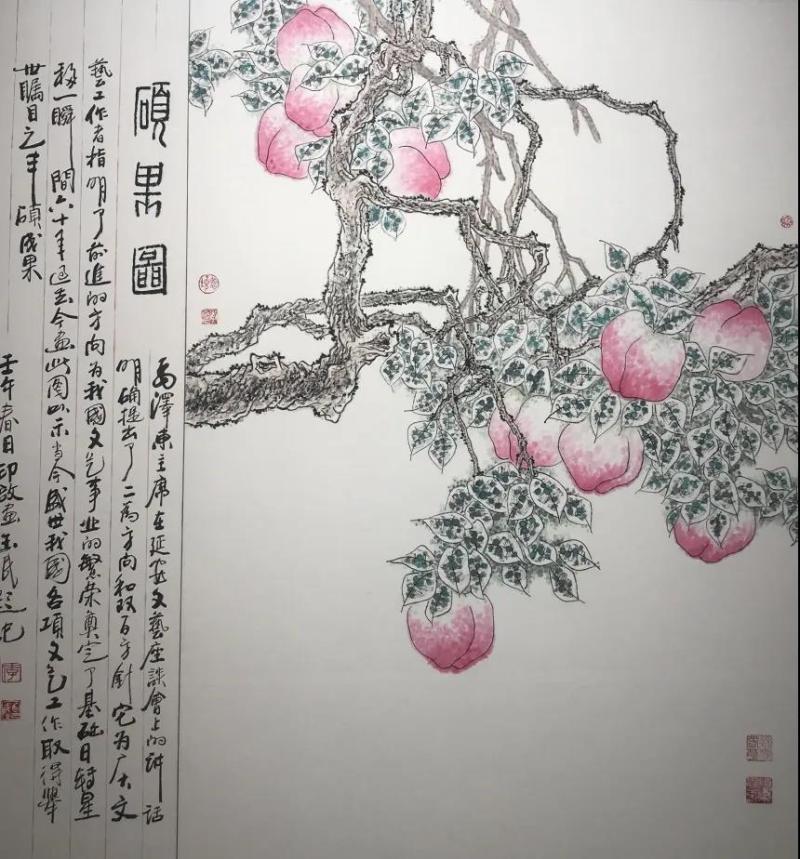 碩果圖
毛澤東主席在延安文藝座談會上的讲話
明确提出了二為方向和双百方針它为广大文
藝工作者指明了前進的方向为我國文艺事业的繁荣奠定了基础日轉星
移一瞬間六十年过去今画此圖以示当今盛世我國各項文艺工作取得舉
世瞩目之丰碩成果
壬午春日印政画玉民题记